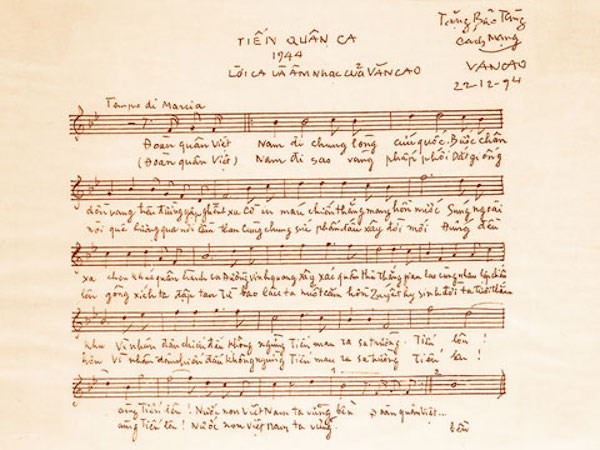 TIẾN QUÂN CA
1944
LỜI CA VÀ ÂM NHẠC CỦA VĂN CAO
Tặng Bảo Tàng
Cách Mạng
VĂN CAO
22-12-94
Tempo di Marcia
Đoàn quân Việt Nam đi chung lòng cứu quốc. Bước chân
(Đoàn quân Việt) Nam đi sao vàng phấp phới Dắt giống
dồn vang trên đường gập ghềnh xa Cờ in máu chiến thắng mang hồn nước Súng ngoài
nòi quê hương qua nơi lầm than Cùng chung sức phấn đấu xây đời mới Đứng đều
xa chen khúc quân hành ca Đường vinh quang xây xác quân thù Thắng gian lao cùng nhau lập chiến
lên gông xích ta đập tan Từ bao lâu ta nuốt căm hờn Quyết hy sinh đời ta tươi thắm
khu Vì nhân dân chiến đấu không ngừng Tiến mau ra sa trường. Tiến lên !
hơn Vì nhân dân chiến đấu không ngừng Tiến mau ra sa trường Tiến lên !
cùng Tiến lên ! Nước non Việt Nam ta vững bền Đoàn quân Việt...
cùng Tiến lên ! Nước non Việt Nam ta vững
bền